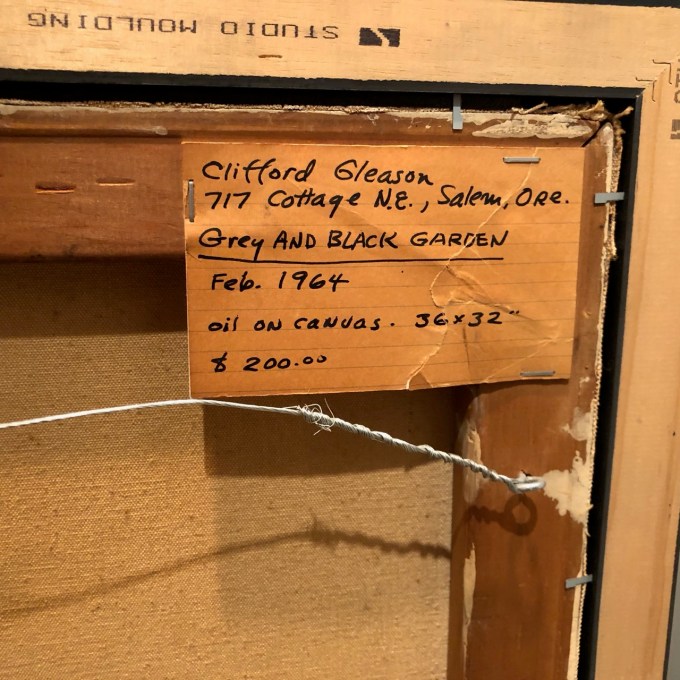 STUDIO MOULDING
Clifford Gleason
717 Cottage N.E., Salem, Ore.
Grey AND BLACK GARDEN
Feb. 1964
oil on canvas. 36x32"
$ 200.00